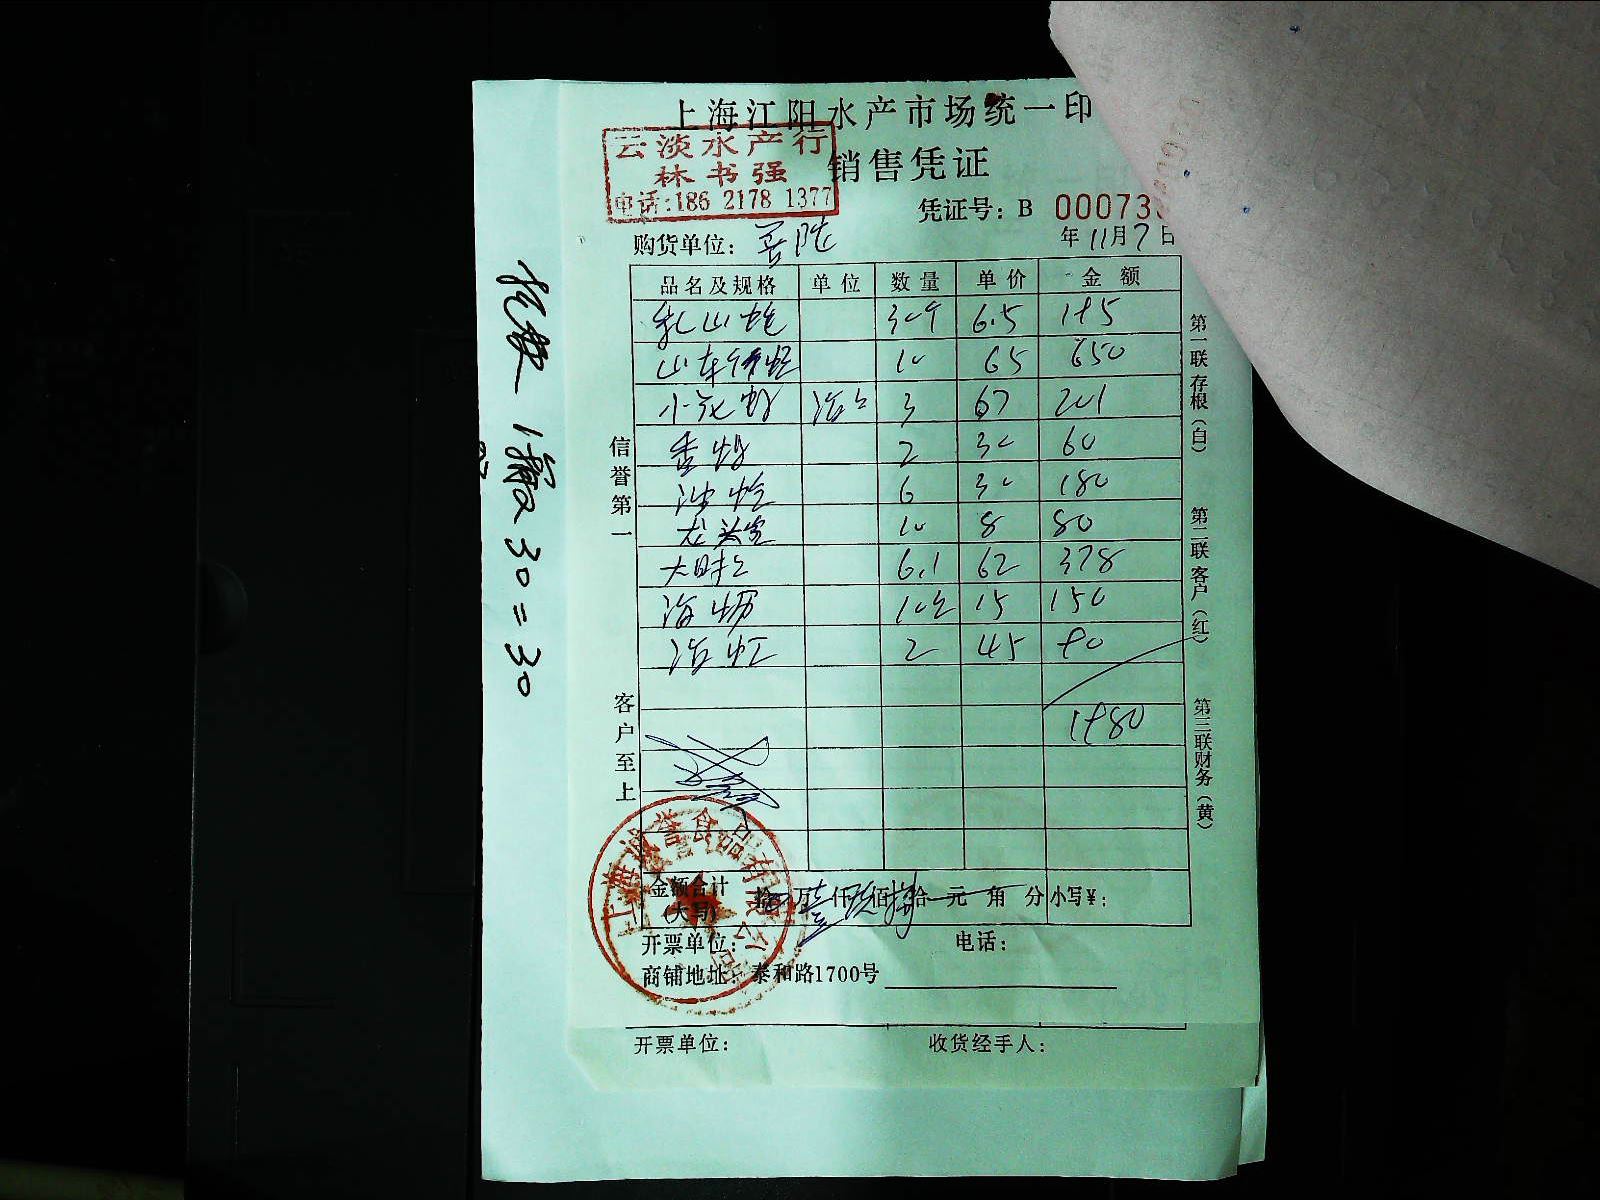 上海江阳水产市场统一印
云淡水产行
林书强
电话:186 2178 1377
销售凭证
凭证号: B 00073
购货单位:
年 11月7日
品名及规格 单位 数量 单价 金额
乳山蛏 30斤 6.5 195
山东 10 65 650
小花 3 67 201
香 2 30 60
6 30 180
龙头 10 8 80
大 6.1 62 378
海蛎 10 15 150
活虾 2 45 90
1980
信誉第一
客户至上
第一联 存根（白）
第二联 客户（红）
第三联 财务（黄）
上海诚誉食品有限公司
金额合计
(大写)
拾 万 仟 佰 拾 元 角 分 小写¥:
开票单位: 电话:
商铺地址: 泰和路1700号
开票单位: 收货经手人:
30=30